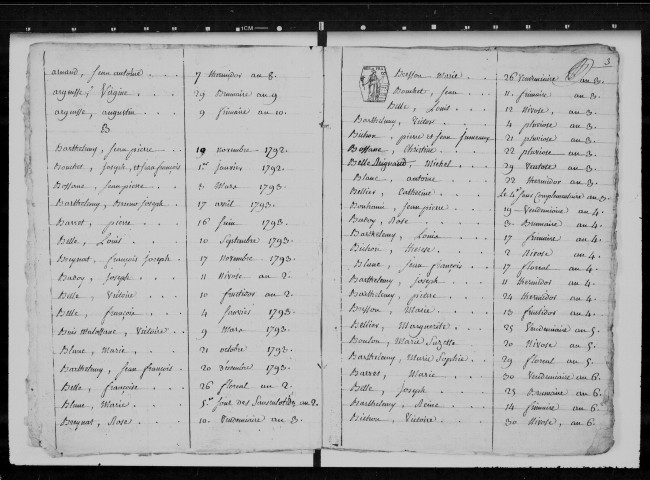 ICM
arnaud, Jean antoine . . . 7 thermidor an 8.
argensse, Virginie . . . 29 Brumaire an 9
argensse, augustin . . . 9 frimaire an 10.
B
Barthelemy, Jean pierre . . 19 novembre 1792.
Bouchet, Joseph, et Jean françois 1er janvier 1792.
Bossane, Jean pierre . . . 8 Mars 1793.
Barthelemy, Bruno Joseph . . 17 avril 1793.
Barret, pierre . . . 16 Juin 1793.
Belle, Louis . . . 10 Septembre 1793.
Breynat, françois Joseph . . 17 novembre 1793.
Badoy, Joseph . . . 11 Nivose an 2.
Belle, Victoire . . . 10 fructidor an 2.
Belle, françois . . . 4 Janvier 1793.
Buis Malossane, Victoire . . 9 Mars 1793.
Blanc, Marie . . . 21 octobre 1793.
Barthelemy, Jean françois . 20 décembre 1793.
Belle, françoise . . . 26 floreal an 2.
Blanc, Marie . . . 5e Jour des Sansculotides an 2.
Breynat, Rose . . . 10 Vendemiaire an 3.
3
Bresson Marie . . 26 Vendemiaire an 3.
Bouchet, Jean . . . 11 frimaire an 3.
Belle, Louis . . . 12 Nivose, an 3.
Barthelemy, Victor . . . 4 pluviose an 3.
Bichon, pierre et Jean jumeaux 21 pluviose an 3.
Bossane, Christine . . . 22 pluviose an 3.
Belle Michel . . 29 Ventose an 3.
Blanc, antoine . . . 22 thermidor an 3.
Bellier, Catherine . . . Le 4e Jour Complementaire an 3.
Bonhomme, Jean pierre . . . 19 Vendemiaire an 4.
Rose . . . 3 Brumaire an 4.
Barthelemy, Louis . . . 17 frimaire an 4.
Bichon, Therese . . . 2 Nivose an 4.
Blanc, Jean françois . . . 17 floreal an 4.
Barthelemy, Joseph . . . 11 thermidor an 4.
Barthelemy, pierre . . . 24 thermidor an 4.
Bresson, Marie . . . 13 fructidor an 4.
Bellier, Marguerite . . . 25 Vendemiaire an 5.
Boulon, Marie Suzette . . . 20 Nivose an 5.
Barthelemy, Marie Sophie . . 29 floreal an 5.
Barret, Marie . . . 30 Vendemiaire an 6.
Belle, Joseph . . . 25 Brumaire an 6.
Barthelemy, Reine . . . 14 frimaire an 6.
Bichon, Victoire . . . 30 Nivose, an 6.